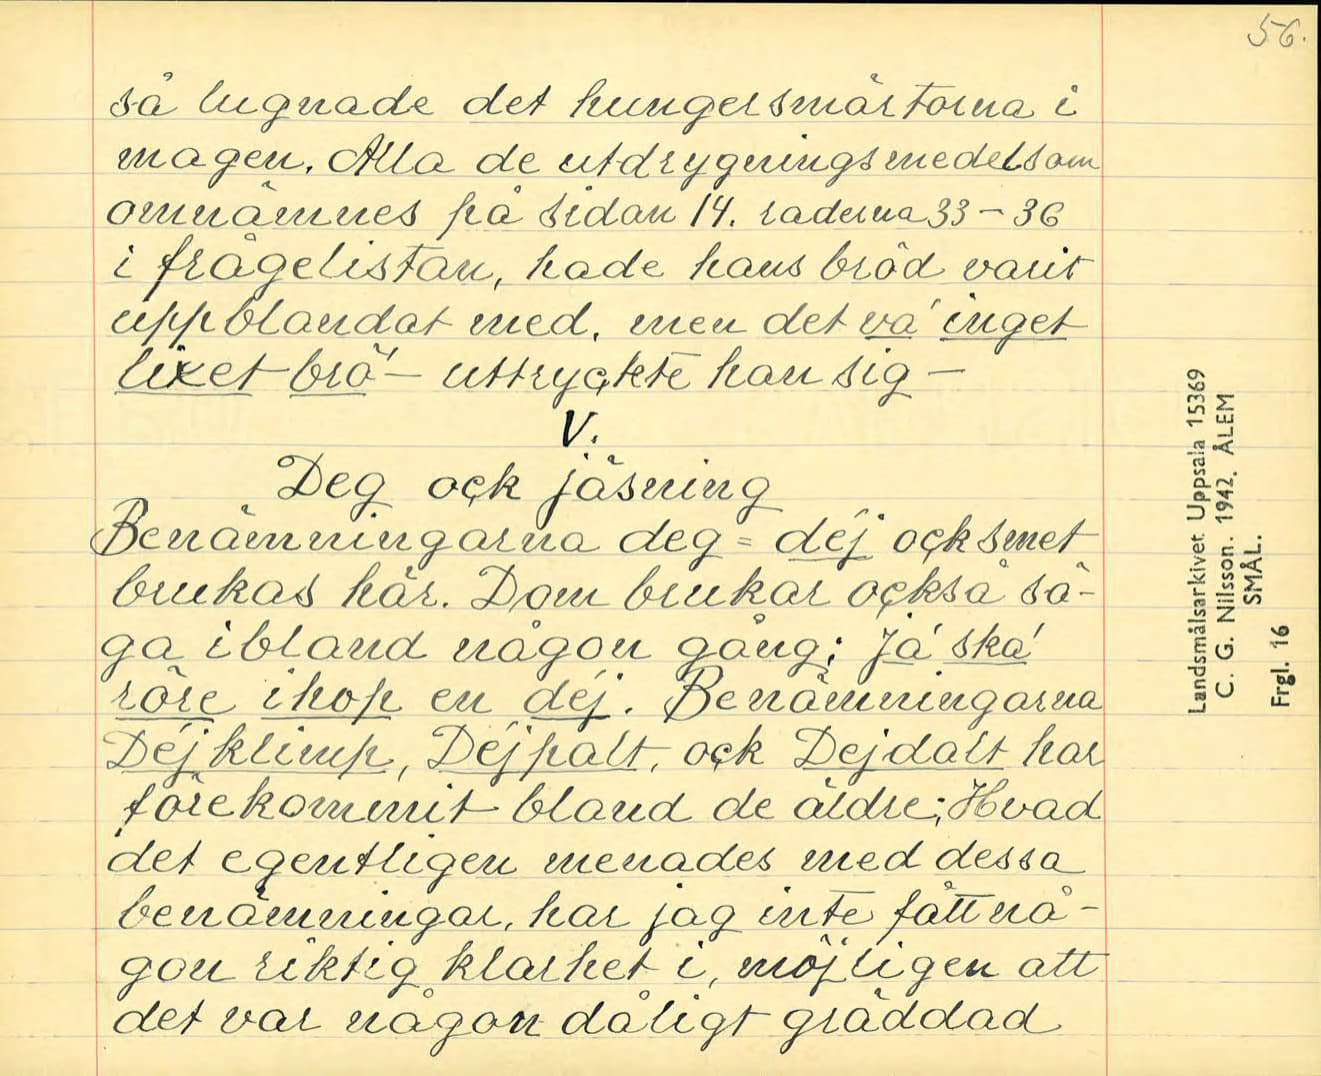 56.
så lugnade det hungersmärtorna i
magen. Alla de utdrygningsmedel som
omnämnes på sidan 14. raderna 33-36
i frågelistan, hade hans bröd varit
uppblandat med, men det va' inget
lixet brö' - uttryckte han sig -
V.
Deg ock jäsning
Benämningarna deg = déj ock smet
brukas här. Dom brukar också sä-
ga ibland någon gång; Ja' ska'
röre ihop en déj. Benämningarna
Déjklimp, Déjpalt, ock Dejdalt har
förekommit bland de äldre; Hvad
det egentligen menades med dessa
benämningar, har jag inte fått nå-
gon riktig klarhet i, möjligen att
det var någon dåligt gräddad
Landsmålsarkivet Uppsala 15369
C. G. Nilsson. 1942. ÅLEM
SMÅL.
Frgl. 16